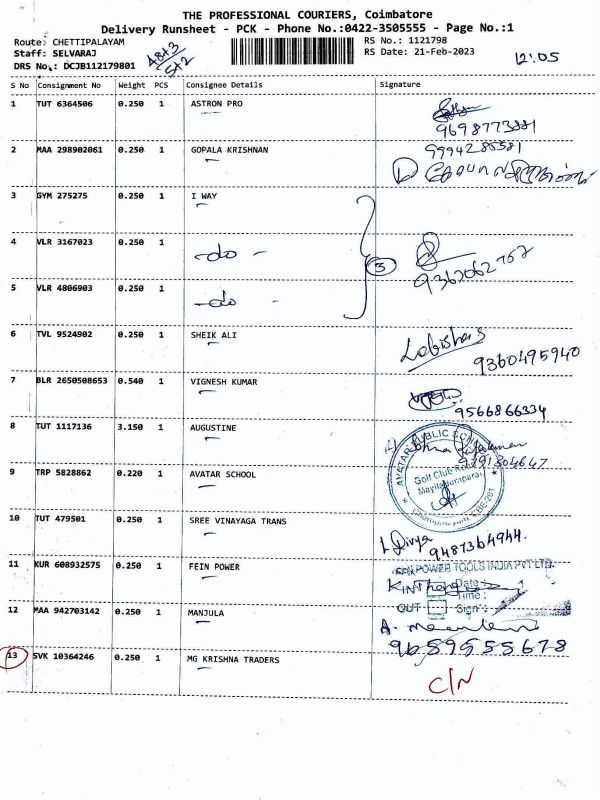 THE PROFESSIONAL COURIERS, Coimbatore
Delivery Runsheet - PCK - Phone No.:0422-3505555 - Page No.:1
Route: CHETTIPALAYAM
RS No.: 1121798
Staff: SELVARAJ
48+3
RS Date: 21-Feb-2023
12:05
DRS No.: DCJB112179801
5+2
S No Consignment No Weight PCS Consignee Details Signature
1 TUT 6364506 0.250 1 ASTRON PRO
9698773881
2 MAA 298902061 0.250 1 GOPALA KRISHNAN 9994285581
3 GYM 275275 0.250 1 I WAY
4 VLR 3167023 0.250 1 -do-
3
9363062757
5 VLR 4806903 0.250 1 -do-
6 TVL 9524902 0.250 1 SHEIK ALI
9360495940
7 BLR 2650508653 0.540 1 VIGNESH KUMAR
9566866334
8 TUT 1117136 3.150 1 AUGUSTINE
AVATAR PUBLIC SCHOOL
9 TRP 5828862 0.220 1 AVATAR SCHOOL
Golf Club Road
10 TUT 479501 0.250 1 SREE VINAYAGA TRANS
Divya 9487364944
11 KUR 608932575 0.250 1 FEIN POWER
POWER TOOLS INDIA PVT LTD
IN Date
Time:
OUT Sign:
12 MAA 942703142 0.250 1 MANJULA
9659555678
13 SVK 10364246 0.250 1 MG KRISHNA TRADERS
C/N